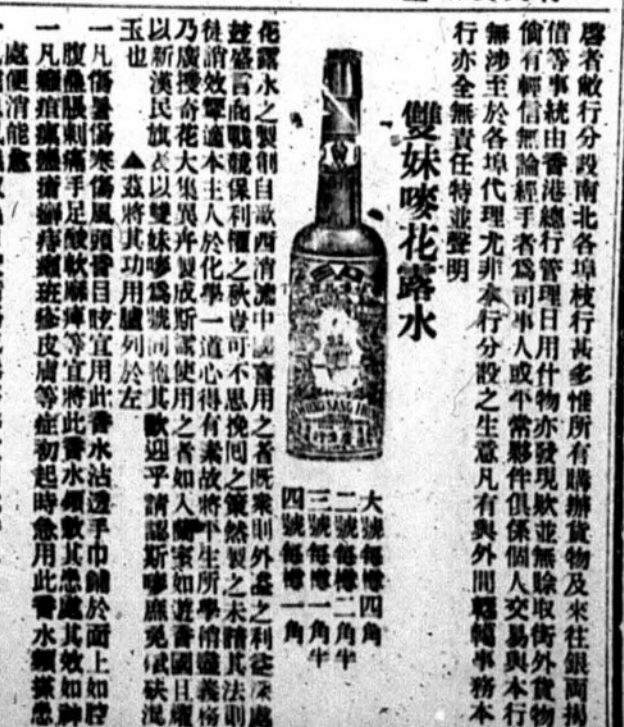 啓者敝行分設南北各埠枝行甚多惟所有購辦貨物及來往銀兩揭
借等事統由香港總行管理日用什物亦發現欵並無賒取街外貨物
倘有輕信無論經手者爲司事人或平常夥伴俱係個人交易與本行
無涉至於各埠代理尤非本行分設之生意凡有與外間轇轕事務本
行亦全無責任特並聲明
雙妹嘜花露水
大號每樽四角
二號每樽二角半
三號每樽一角半
四號每樽一角
花露水之製創自歐西消流中國
用之者旣衆則外
之利
盛言商戰競保利權之秋豈可不思挽回之策然製之未精其法則
消效罕
本主人於化學一道心得有素故將平生所學
盡義務
乃廣搜奇花大集異卉製成斯露使用之者如入蘭室如遊香國且
以新漢民旗表以雙妹嘜爲號同胞其歡迎乎請認斯嘜庶免
玉也
▲茲將其功用臚列於左
一凡傷暑傷寒傷風頭
目眩宜用此香水沾透手巾鋪於面上如
腹
脹刺痛手足酸軟麻痺等宜將此香水
數其患處其效如神
一凡
痱
斑疹皮膚等症初起時急用此香水
搽患
處便消能愈